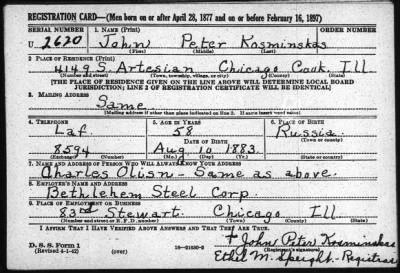 REGISTRATION CARD—(Men born on or after April 28, 1877 and on or before February 16, 1897)
SERIAL NUMBER 1. NAME (Print)
U 2620 John Peter Kosminskas
(First) (Middle) (Last)
2. PLACE OF RESIDENCE (Print)
4149 S. Artesian Chicago Cook Ill
(Number and street) (Town, township, village, or city) (County) (State)
[THE PLACE OF RESIDENCE GIVEN ON THE LINE ABOVE WILL DETERMINE LOCAL BOARD
JURISDICTION; LINE 2 OF REGISTRATION CERTIFICATE WILL BE IDENTICAL]
3. MAILING ADDRESS
Same
[Mailing address if other than place indicated on line 2. If same insert word same]
4. TELEPHONE 5. AGE IN YEARS 6. PLACE OF BIRTH
Laf. 58 Russia
DATE OF BIRTH (Town or county)
8594 Aug 10 1883.
(Exchange) (Number) (Mo.) (Day) (Yr.) (State or country)
7. NAME AND ADDRESS OF PERSON WHO WILL ALWAYS KNOW YOUR ADDRESS
Charles Olism - Same as above.
8. EMPLOYER'S NAME AND ADDRESS
Bethlehem Steel Corp.
9. PLACE OF EMPLOYMENT OR BUSINESS
83rd Stewart. Chicago Ill
(Number and street or R. F. D. number) (Town) (County) (State)
I AFFIRM THAT I HAVE VERIFIED ABOVE ANSWERS AND THAT THEY ARE TRUE.
D. S. S. Form 1
(Revised 4-1-42) (over) 16—21630-2 John Peter Kosminskas
(Registrant's signature)
Ethel M. Speight. Registrar